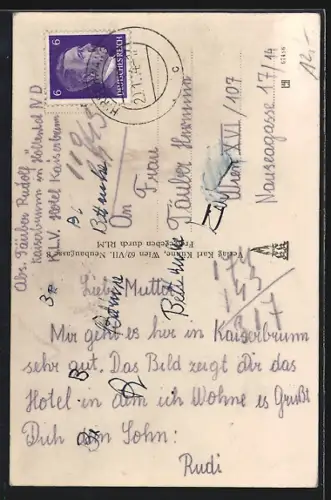 6 6
DEUTSCHES REICH
12.-
Abs. Täuber Rudolf
Kaiserbrunn im Höllental N D
K.L.V. Hotel Kaiserbrunn
An Frau
Täuber Hermine
Wien XVI/107
Nauseagasse 17/14
Verlag Karl Kühne, Wien 62/VII, Neubaugasse
Freigegeben durch RLM
Liebe Mutter
Mir geht es hir in Kaiserbrunn
sehr gut. Das Bild zeigt dir das
Hotel in dem ich Wohne es Grüßt
Dich dein Sohn:
Rudi